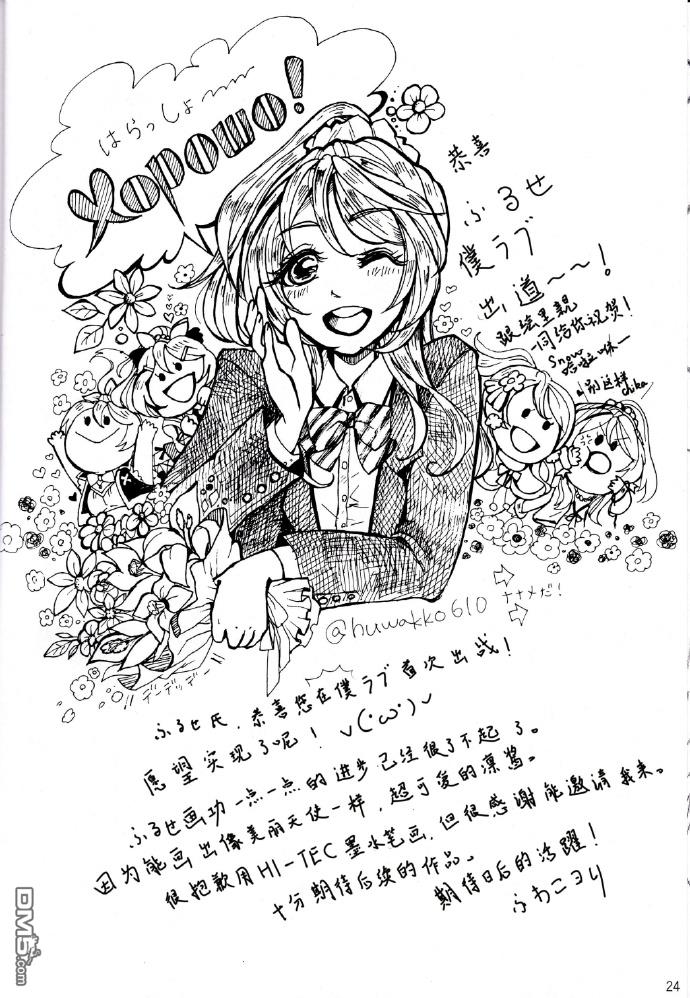 はらっしょ〜
Хорошо!
恭喜
ふるせ
僕ラブ
出道〜〜!
一同给你祝贺!
Snow
哈拉一咻一
别这样
chika
@huwakko610
ナナメだ!
デーデッデー!!
ふるせ氏,恭喜您在僕ラブ首次出战!
愿望实现了呢! v(･ω･)v
ふるせ画功一点一点的进步已经很了不起了。
因为能画出像美丽天使一样,超可爱的凛酱。
很抱歉用HI-TEC墨水笔画,但很感谢能邀请我来。
十分期待后续的作品。
期待日后的活躍!
ふわこより
DM5.com
24